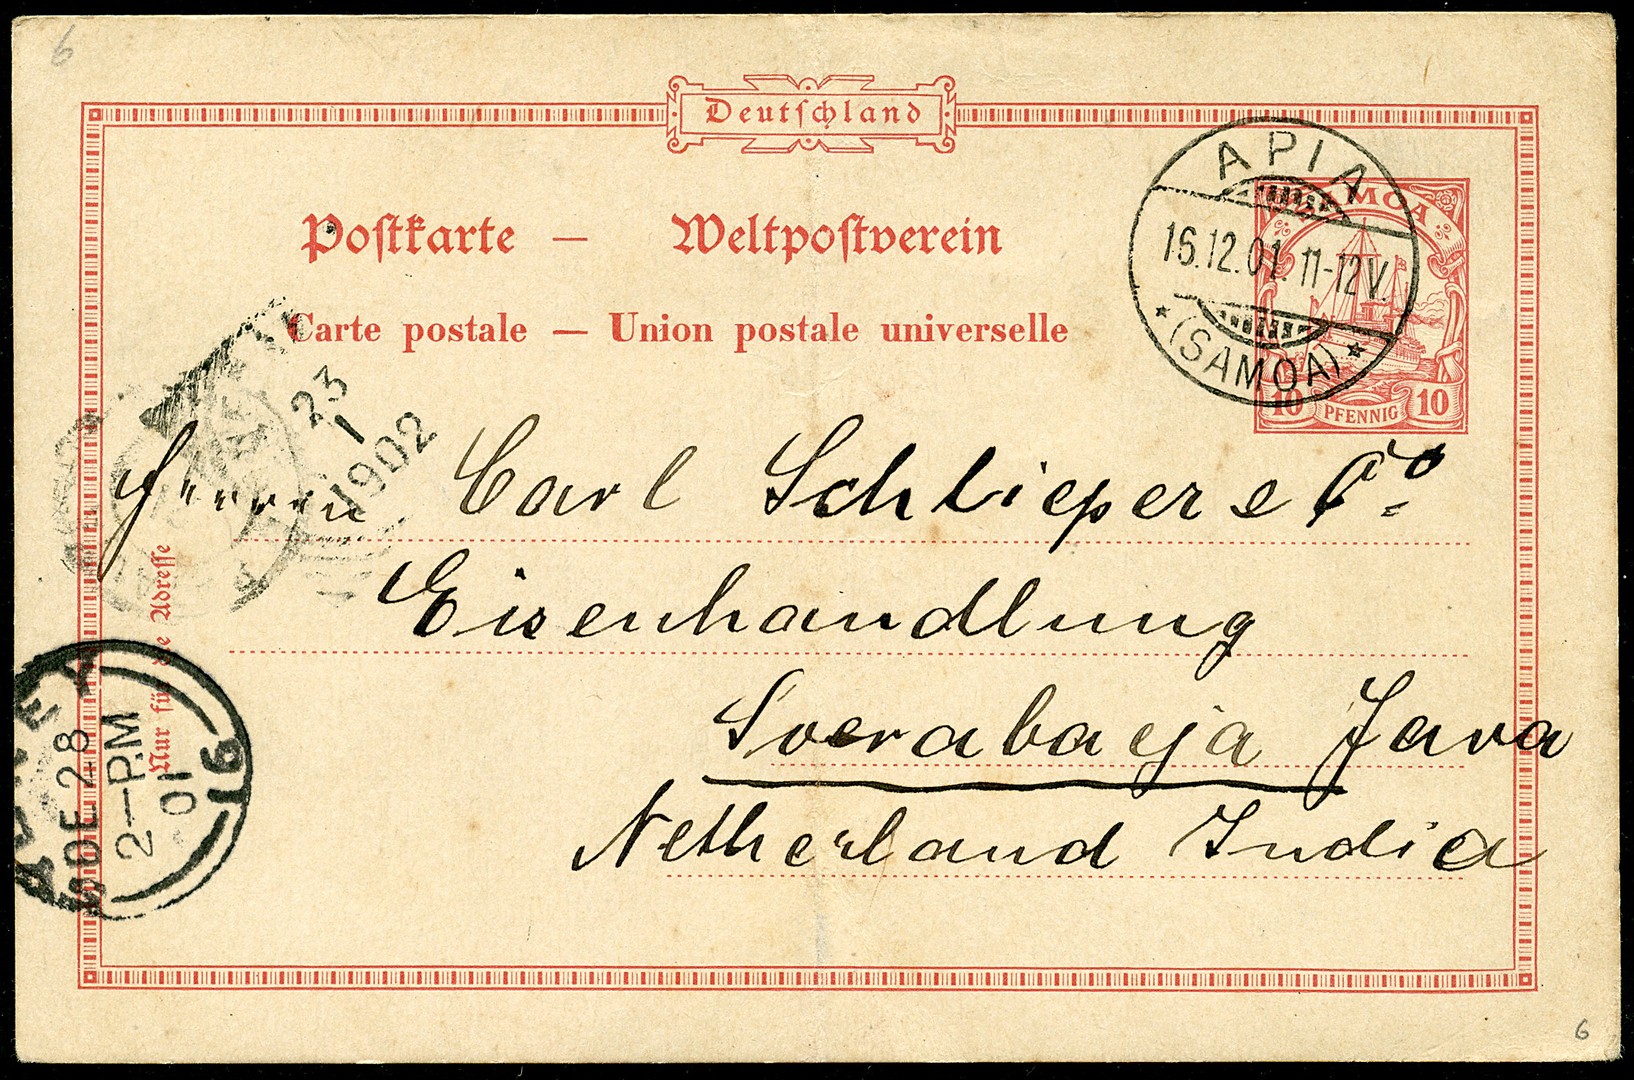 6
Deutschland
Postkarte — Weltpostverein
Carte postale — Union postale universelle
APIA
16.12.01. 11-12V.
* (SAMOA) *
SAMOA
10 PFENNIG 10
23
1
1902
Herren Carl Schlieper & Co.
Eisenhandlung
Soerabaija Java
Netherland India
Nur für die Adresse
DE 28
2-PM
01
16
6